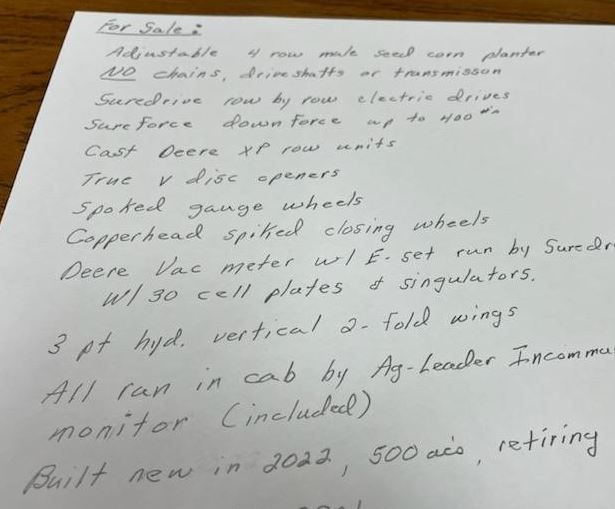 For Sale:
Adjustable 4 row male seed corn planter
NO chains, driveshafts or transmisson
Suredrive row by row electric drives
Sure Force down force up to 400
Cast Deere XP row units
True V disc openers
Spoked gauge wheels
Copperhead spiked closing wheels
Deere Vac meter w/ E-set run by Suredr
w/ 30 cell plates & singulators.
3 pt hyd. vertical 2-fold wings
All ran in cab by Ag-Leader Incomma
monitor (included)
Built new in 2022, 500 ac's, retiring